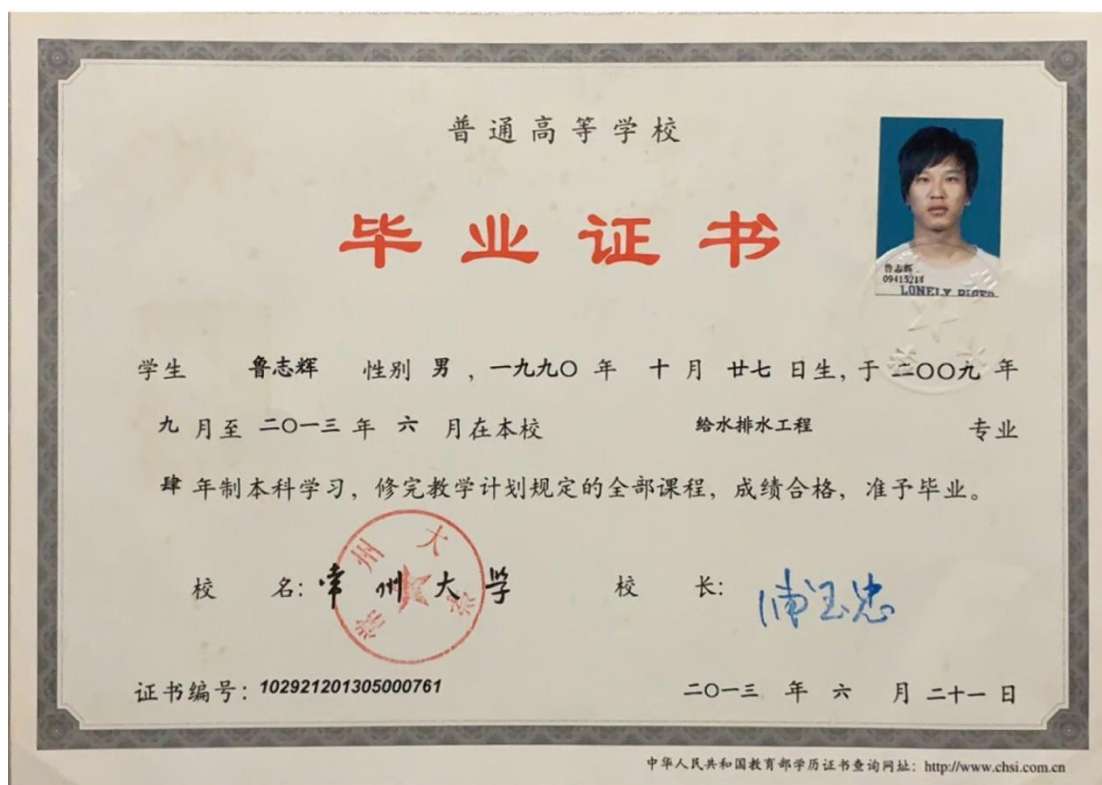 普通高等学校
毕业证书
鲁志辉
09415218
LONELY
学生 鲁志辉 性别 男 , 一九九〇 年 十 月 廿七 日生, 于 二〇〇九 年
九 月至 二〇一三 年 六 月在本校 给水排水工程 专业
肆 年制本科学习, 修完教学计划规定的全部课程, 成绩合格, 准予毕业。
校 名: 常州大学 校 长: 浦玉忠
常州大学
证书编号: 102921201305000761 二〇一三 年 六 月 二十一 日
中华人民共和国教育部学历证书查询网址: http://www.chsi.com.cn